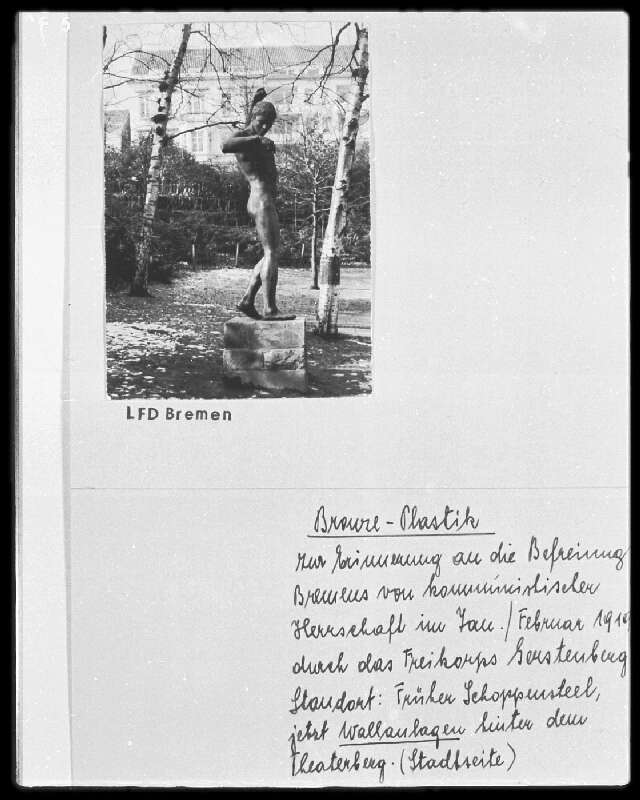 LFD Bremen
Bronze-Plastik
zur Erinnerung an die Befreiung
Bremens von kommunistischer
Herrschaft im Jan./Februar 1919
durch das Freikorps Gerstenberg
Standort: Früher Schoppensteel,
jetzt Wallanlagen hinter dem
Theaterberg. (Stadtseite)